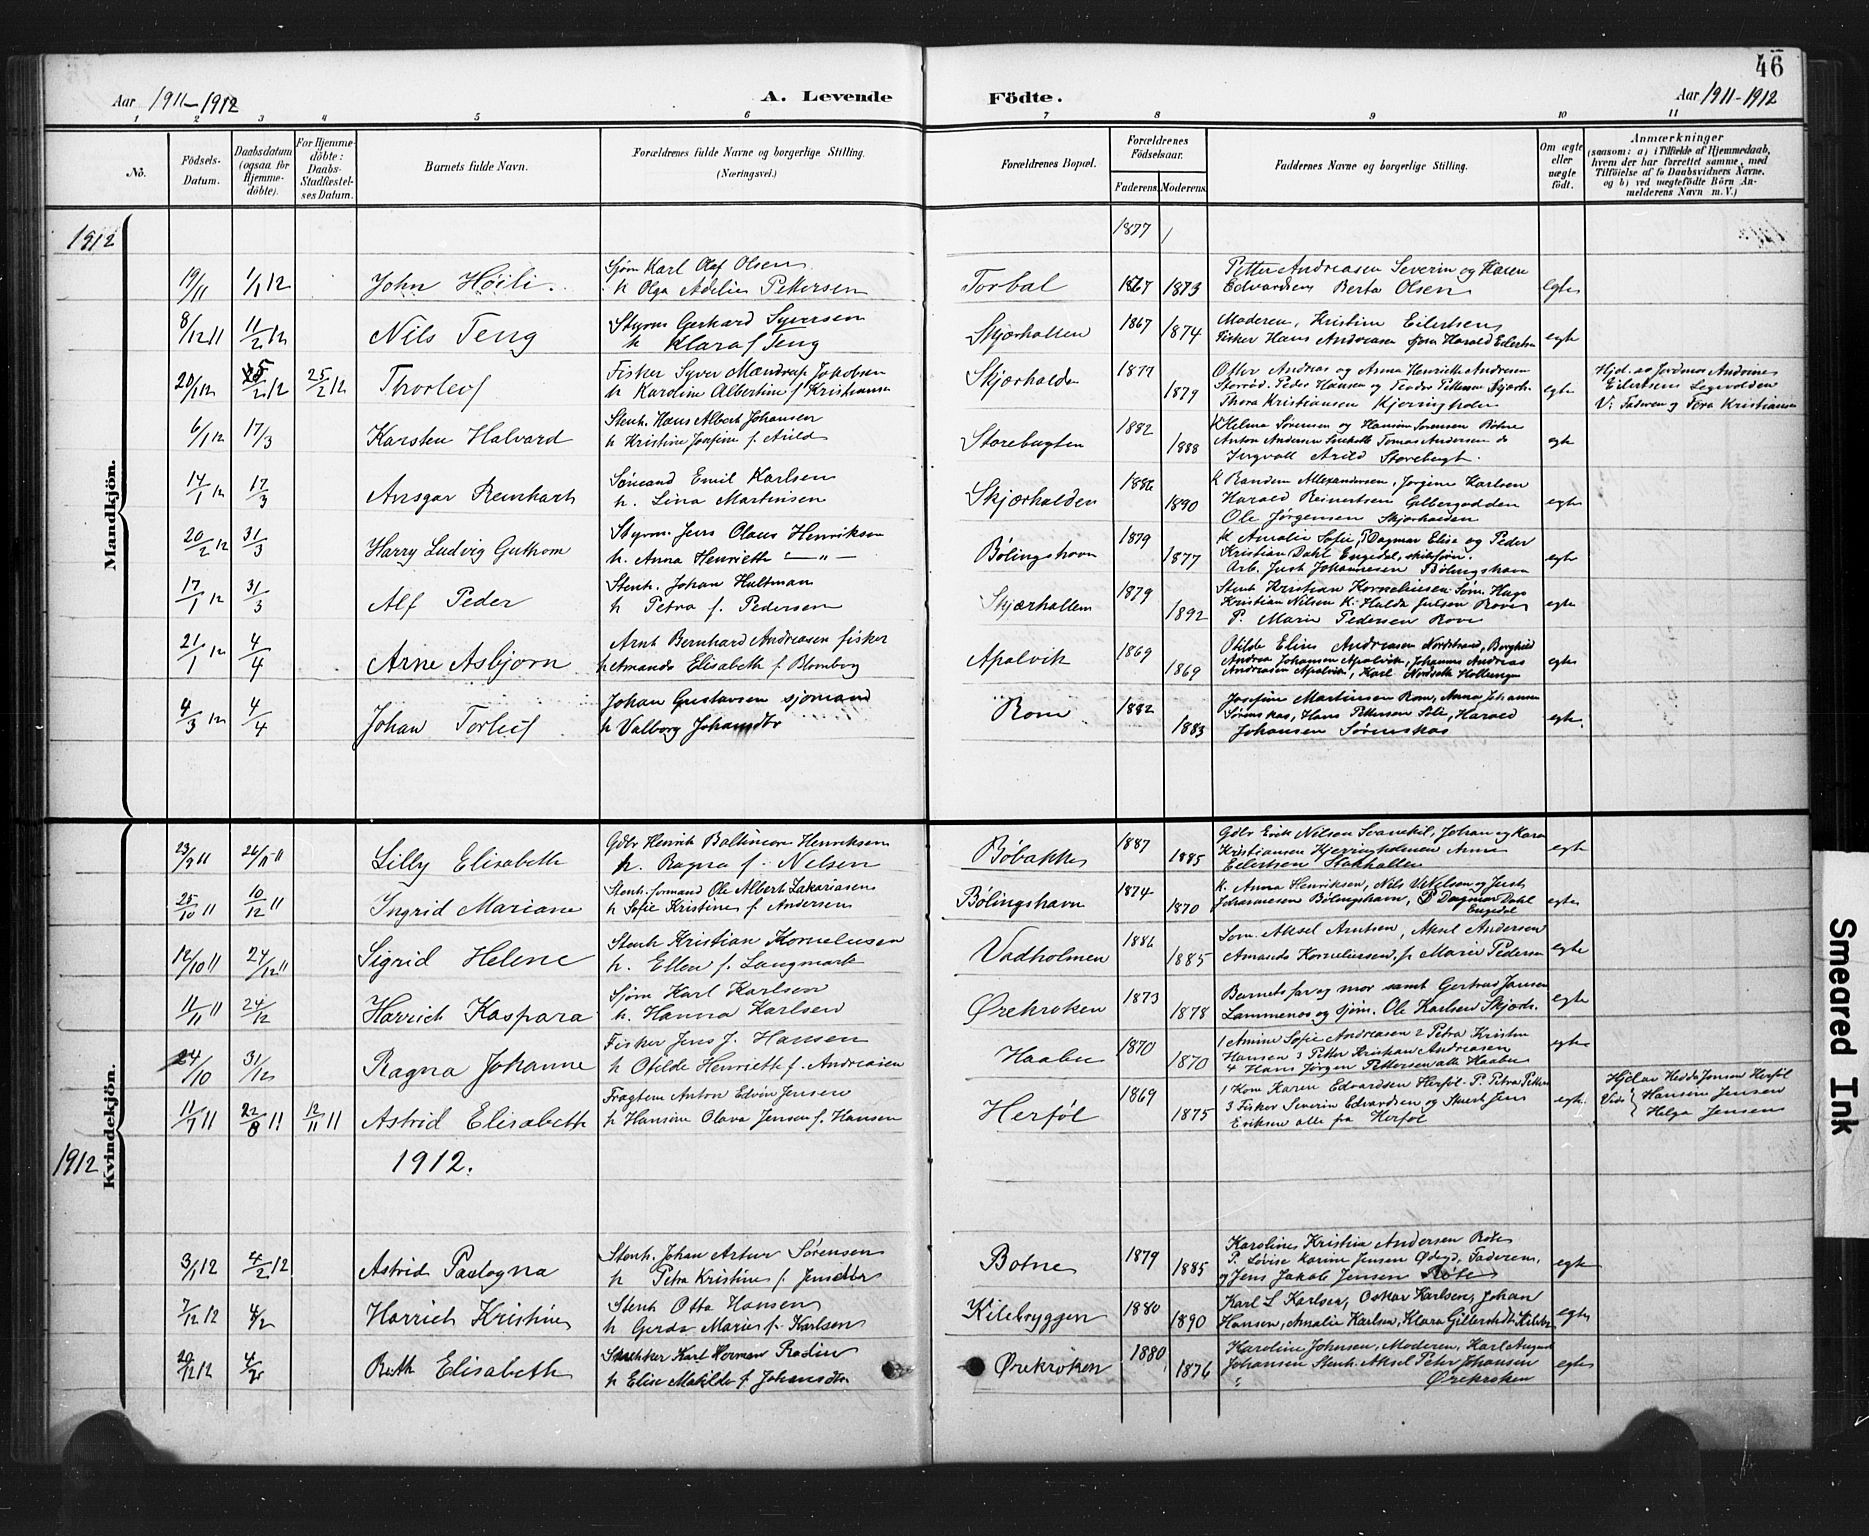 46
Aar 1911-1912
A. Levende Födte.
Aar 1911-1912
1 2 3 4 5 6 7 8 9 10 11
No.
Födsels-Datum.
Daabsdatum (ogsaa for Hjemmedöbte).
For Hjemmedöbte: Daabs-Stadfæstelses Datum.
Barnets fulde Navn.
Forældrenes fulde Navne og borgerlige Stilling. (Næringsvei.)
Forældrenes Bopæl.
Forældrenes Födselsaar.
Faderens. Moderens.
Faddernes Navne og borgerlige Stilling.
Om ægte eller uægte födt.
Anmærkninger
(saasom: a) i Tilfælde af Hjemmedaab, hvem der har forrettet samme, med Tilföielse af to Daabsvidners Navne, og b) ved uægtefödte Börn Anmelderens Navn m. V.)
Mandkjön.
1912
1877
19/11 1/1 12 John Høili. Sjøm Karl Olaf Olsen h. Olga Adelie Pettersen Torbal 1867 1873 Petter Andreasen Severin og Karen Edvardsen Berta Olsen egte
8/12 11 11/2 12 Nils Teng Styrm Gerhard Syversen h. Klara f Teng Skjærhallen 1867 1874 Moderen, Kristine Eilertsen Fisker Hans Andreasen Harald Eilertsen egte
20/1 12 25/2 12 25/2 12 Thorleif Fisker Syver Jakobsen h Karoline Albertine f Kristiansen Skjærhalden 1877 1879 Andreas og Anna Henriette Andreasen Peder Hansen og Pettersen Skjærh. Thora Kristiansen Kjerringholm egte Hjd. av Jordmor Eilertsen V: Faderen og Tora Kristiansen
6/1 12 17/3 Karsten Halvard Stenh. Hans Albert Johansen h Kristine Josefine f. Arild Storebugten 1882 1888 K Helma Sørensen og Hansine Sørensen Botne Anton Andersen Tomas Andersen do Ingvall Arild Storebugt. egte
14/1 12 17/3 Ansgar Reinhart Sømand Emil Karlsen h. Lina Martinsen Skjærhalden 1886 1890 K Randine Alexandersen, Jørgine Karlsen Harald Reinertsen Ole Jørgensen Skjærhalden egte
20/2 12 31/3 Harry Ludvig Guttorm Styrm. Jens Olaus Henriksen h. Anna Henriette — „ — Bølingshavn 1879 1877 K Amalie Sofie, P Dagmar Elise og Peder Kristian Dahl Engedal, Arb. Just Johannesen Bølingshavn egte
17/1 12 31/3 Alf Peder Stenh. Johan Hultman h Petra f. Pedersen Skjærhallen 1879 1892 Stenh Kristian Korneliusen Søm. Hags Kristian Nilsen K. Hulda Julsen Rove P. Marie Pedersen Rove egte
21/1 12 4/4 Arne Asbjørn Arnt Bernhard Andreasen fisker h Amanda Elisabeth f. Blomberg Apalvik 1869 1869 Otilde Elise Andreasen Nordstrand, Borghild Andrea Johansen Apalvik, Johannes Andreas Andreasen Apalvik, Karl egte
4/3 12 4/4 Johan Torleif Johan Gustavsen sjomand h Valborg Johansdtr Rom 1882 1883 Josefine Martinsen Rom, Anna Johansen Sørenskas, Hans Pettersen Harald Johansen Sørenskas egte.
Kvindekjön.
23/9 11 26/11 11 Lilly Elisabeth Gdbr Henrik Baltinsen Henriksen h. Ragna f. Nelsen Bøbakke 1887 1885 Gdbr Erik Nilsen Svanekil, Johan og Kara Kristiansen Kjerringholmen Anna Eilertsen egte
25/10 11 10/12 11 Ingrid Mariane Stenh. formand Ole Albert Zakariasen h Sofie Kristine f. Andersen Bølingshavn 1874 1870 K. Anna Henriksen, Nils V Nelsen og Just Johannesen Bølingshavn, P Dagmar Dahl Engedal egte
12/10 11 24/12 11 Sigrid Helene Stenh Kristian Korneliusen h. Ellen f. Langmark Vadholmen 1886 1885 Som. Aksel Arntsen, Aksel Andersen Amanda Korneliussen, p Marie Pedersen egte
11/11 11 24/12 Harriet Kaspara Sjøm Karl Karlsen h. Hanna Karlsen Ørekroken 1873 1878 Barnets far og mor samt Gertrud Jansen Lammenes og sjøm. Ole Karlsen Skjærh. egte
24/10 31/12 Ragna Johanne Fisker Jens J. Hansen h Otilde Henriette f. Andreasen Haabu 1870 1870 1 Amine Sofie Andreasen 2 Petra Kristine Hansen 3 Petter Kristian Andreasen 4 Hans Jørgen Pettersen alle Haabu egte
11/7 11 22/8 11 12/11 11 Astrid Elisabeth Fragtem Anton Edvin Jensen h Hansine Olava Jensen f. Hansen Herføl 1869 1875 1 Kone Karen Edvardsen Herføl. P. Petra 3 Fisker Severin Edvardsen og Jens Eriksen alle fra Herføl egte. Hjd av Hedda Jensen Herføl Vid: Hansine Jensen Helga Jensen
1912 1912.
3/1 12 4/2 12 Astrid Palogna Stenh. Johan Artur Sørensen h Petra Kristine f. Jensdtr Botne 1879 1885 Karoline Kristia Andersen Røte P. Lovise Karine Jensen Faderen, og Jens Jakob Jensen Røte egte
7/12 12 4/2 Harriet Kristine Stenh Otto Hansen h Gerda Marie f. Karlsen Kilebryggen 1880 1890 Karl L Karlsen, Oskar Karlsen, Johan Hansen, Amalie Karlsen, Klara egte
20/12 12 4/2 Ruth Elisabeth Karl Herman Rodin h Elise Matilde f Johansdtr Ørekroken 1880 1876 Karoline Johnsen, Moderen, Karl August Johansen Stenh. Aksel Peter Johansen Ørekroken egte
Smeared Ink